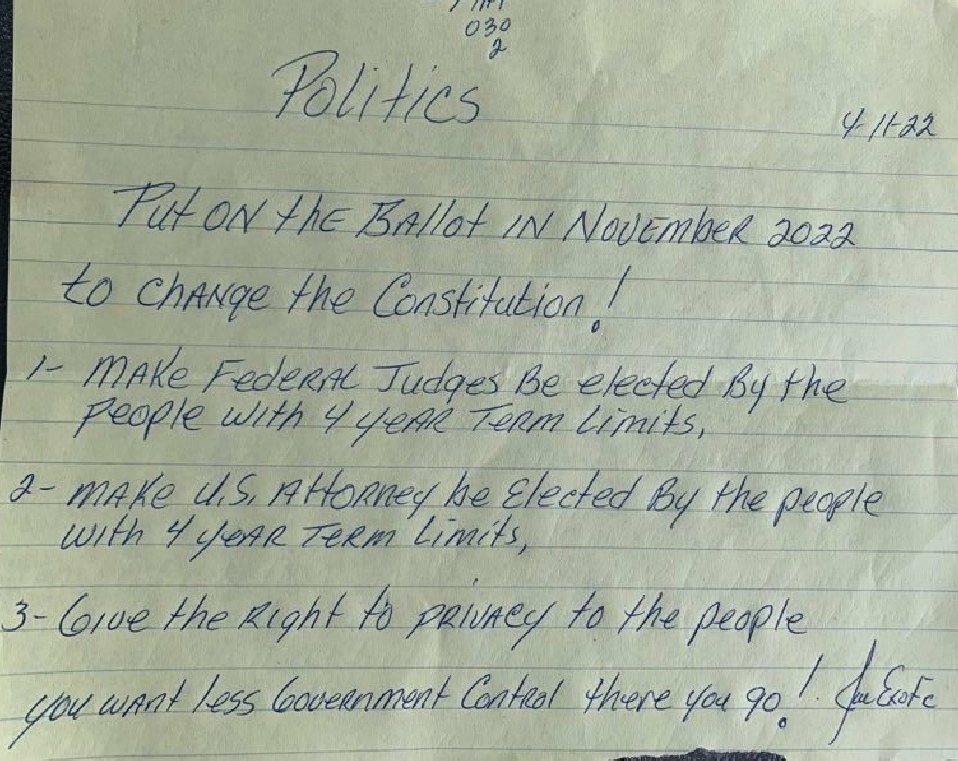 030
2
Politics
4-11-22
Put ON the BAllot IN NovEmbER 2022
to CHANge the Constitution!
1- MAKe FedeRAL Judges Be elected By the
People with 4 yeAR TeRM Limits,
2- MAKe U.S. AttoRNey be Elected By the people
with 4 yeAR TeRM Limits,
3- Give the Right to pRIVAcy to the people
you wANt less GoveRNMENt CoNtRol theRe you go! Joe Exotic